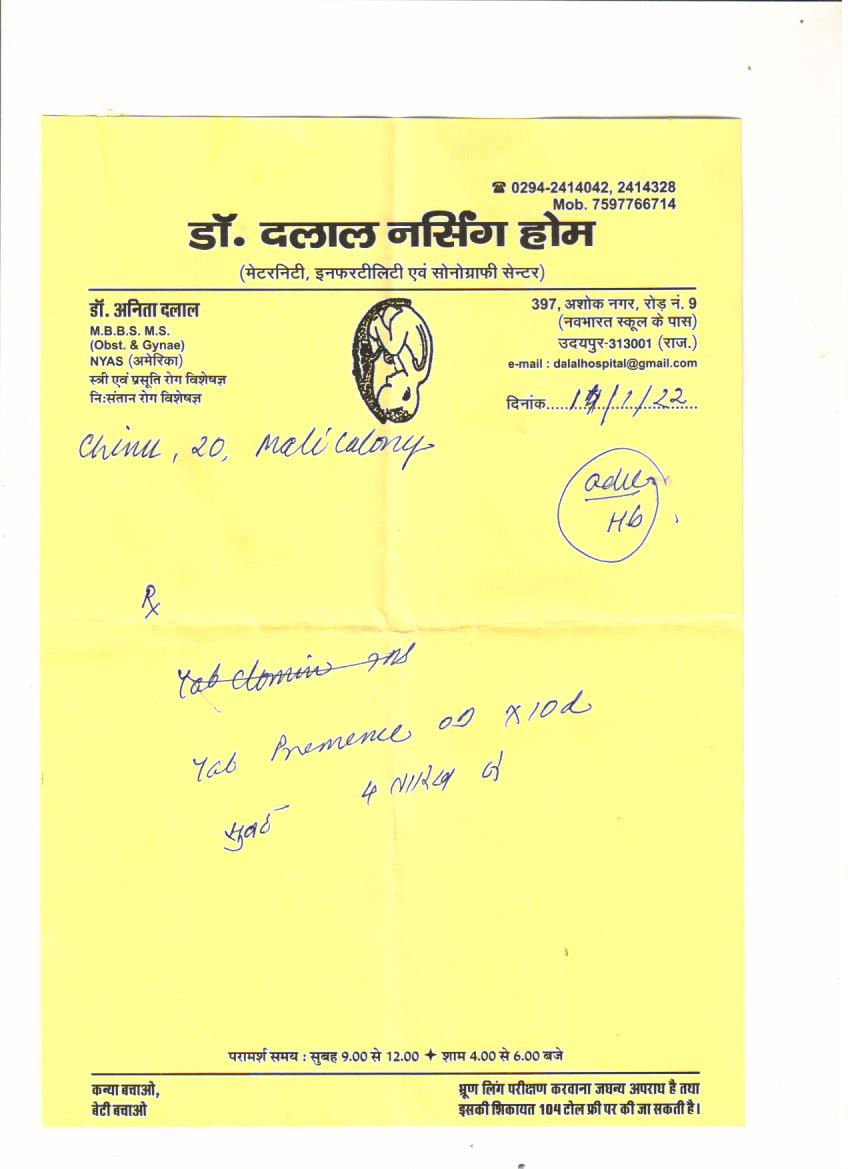 ☎ 0294-2414042, 2414328
Mob. 7597766714
डॉ. दलाल नर्सिंग होम
(मेटरनिटी, इनफरटीलिटी एवं सोनोग्राफी सेन्टर)
डॉ. अनिता दलाल
M.B.B.S. M.S.
(Obst. & Gynae)
NYAS (अमेरिका)
स्त्री एवं प्रसूति रोग विशेषज्ञ
नि:संतान रोग विशेषज्ञ
397, अशोक नगर, रोड़ नं. 9
(नवभारत स्कूल के पास)
उदयपुर-313001 (राज.)
e-mail : dalalhospital@gmail.com
दिनांक /1/22
Chinu, 20, Mali Colony
Hb
Rx
Tab
Tab Premence OD x10d
4 तारीख से
सुबह
परामर्श समय : सुबह 9.00 से 12.00 ✦ शाम 4.00 से 6.00 बजे
कन्या बचाओ,
बेटी बचाओ
भ्रूण लिंग परीक्षण करवाना जघन्य अपराध है तथा
इसकी शिकायत 104 टोल फ्री पर की जा सकती है।